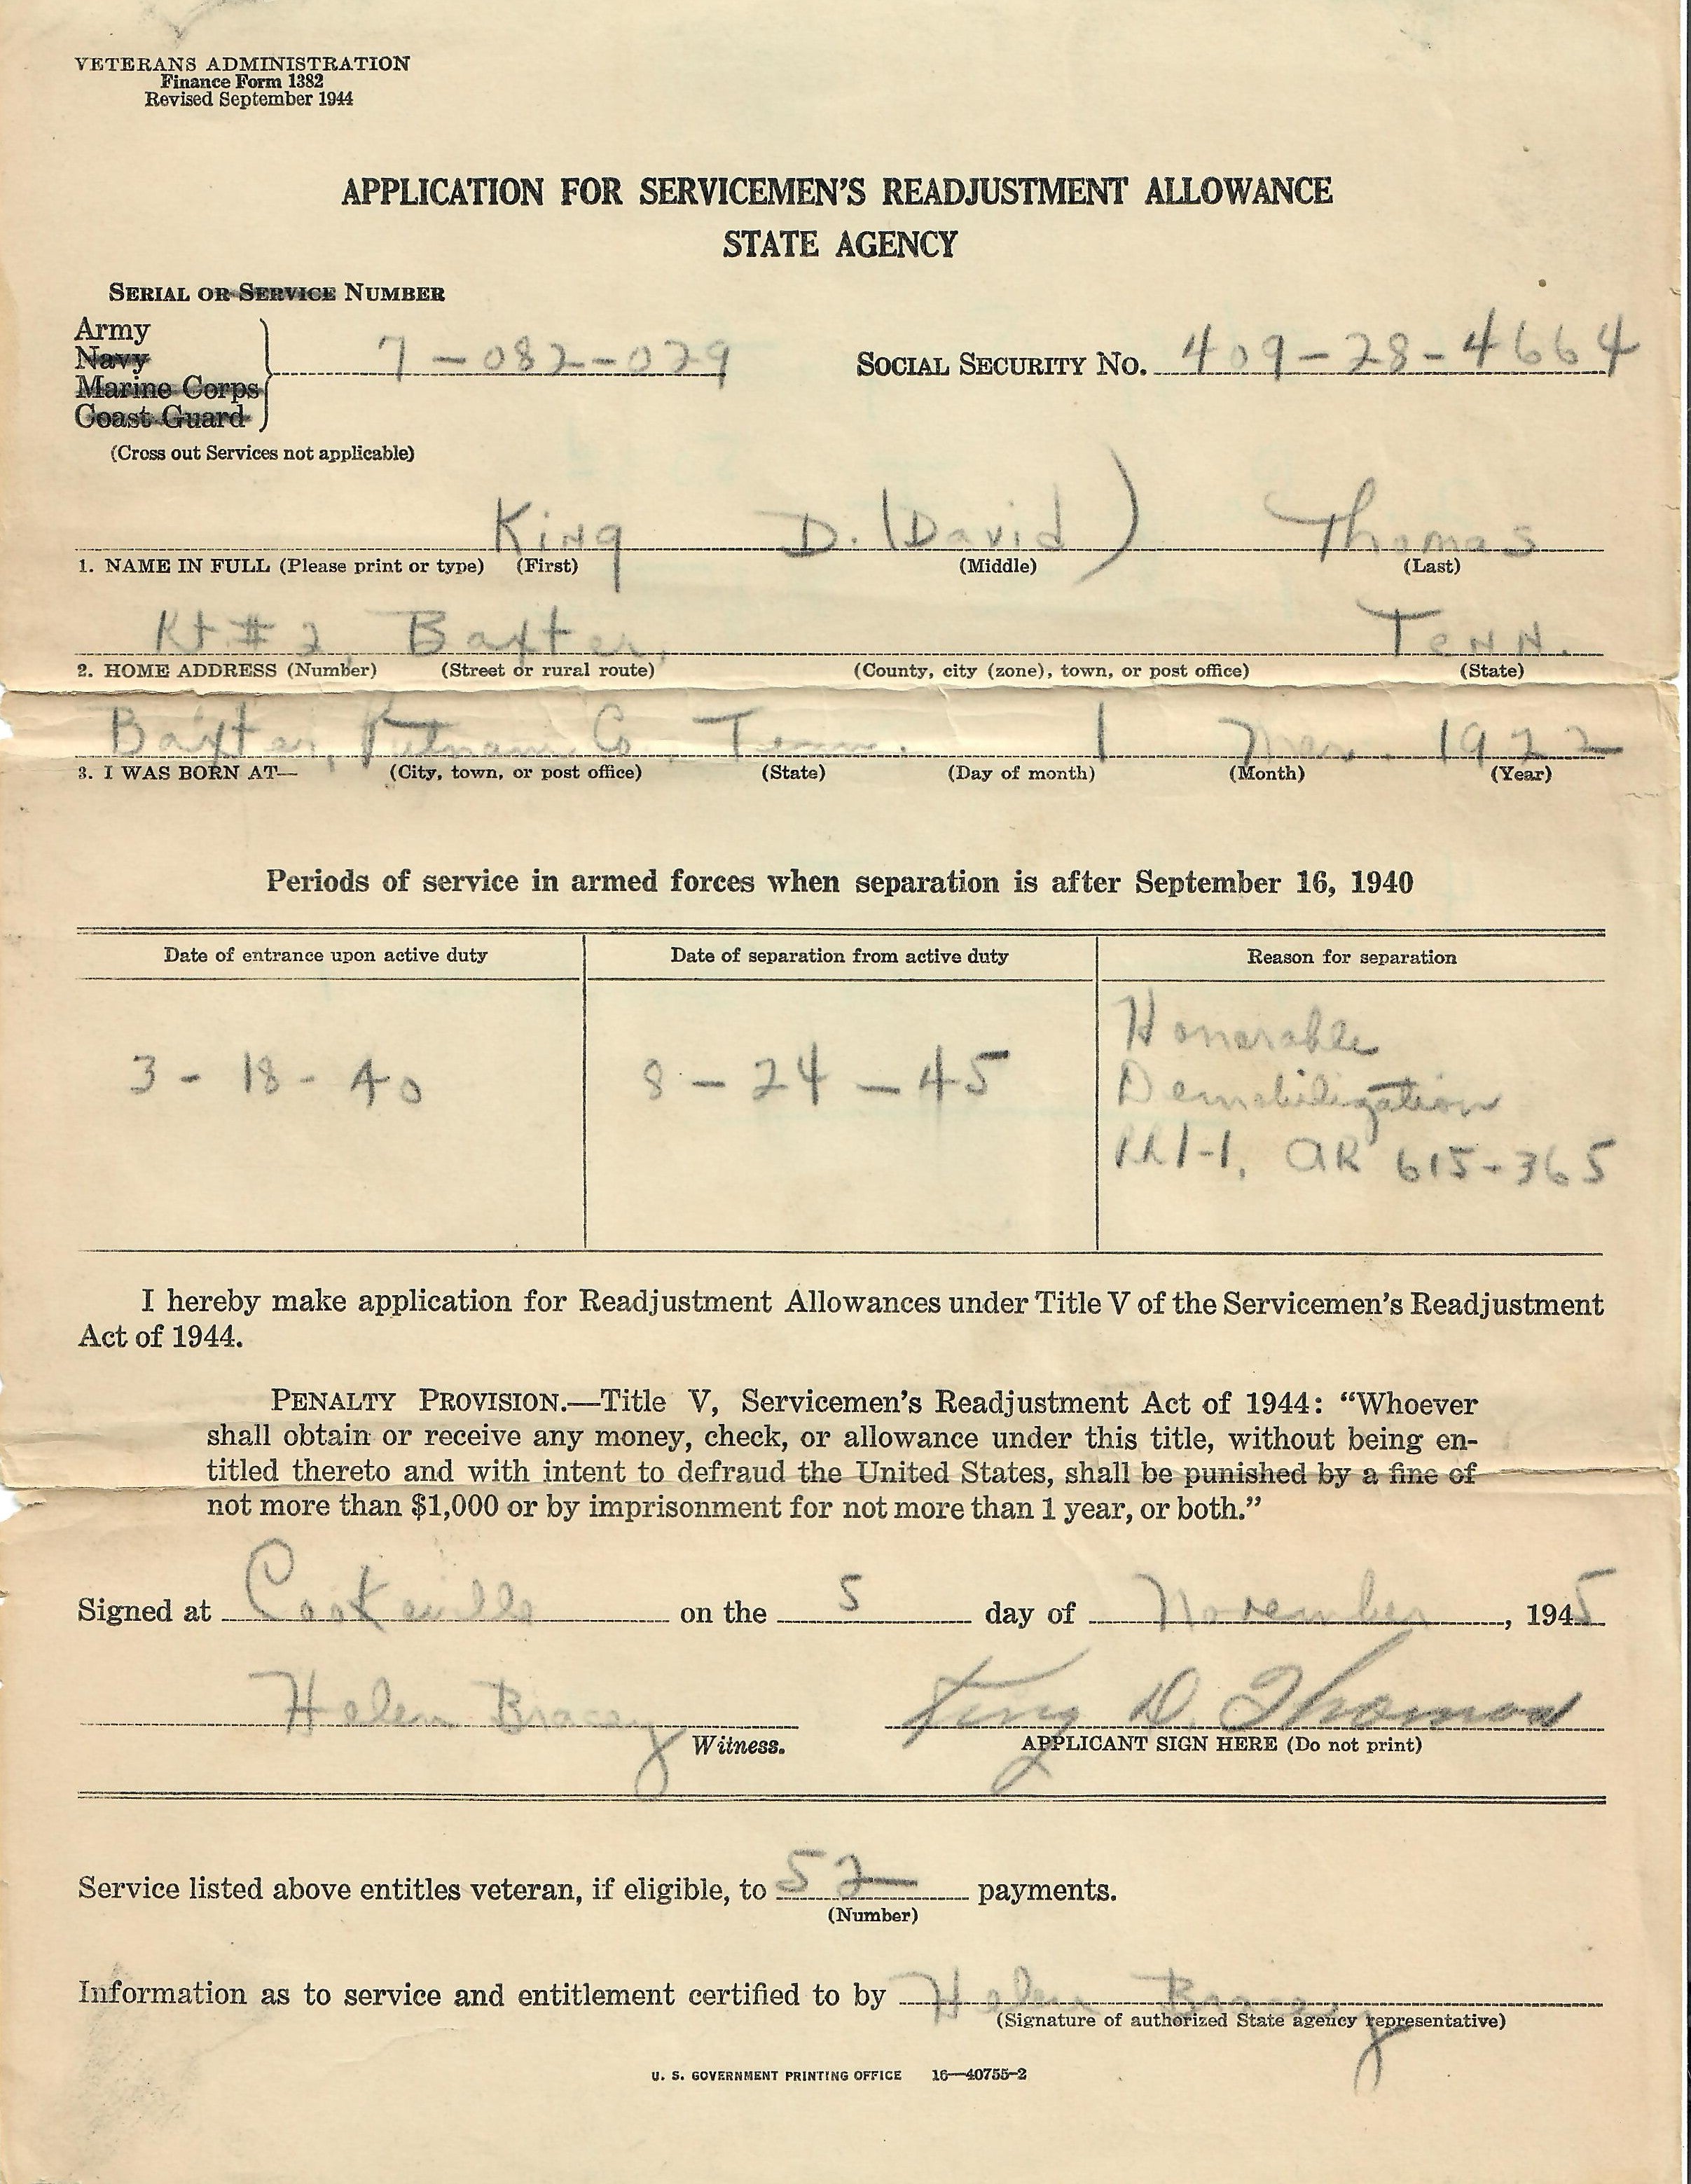 VETERANS ADMINISTRATION
Finance Form 1382
Revised September 1944
APPLICATION FOR SERVICEMEN'S READJUSTMENT ALLOWANCE
STATE AGENCY
SERIAL OR SERVICE NUMBER
Army
Navy
Marine Corps
Coast Guard
7-082-029
SOCIAL SECURITY NO. 409-28-4664
(Cross out Services not applicable)
King D. (David) Thomas
1. NAME IN FULL (Please print or type) (First) (Middle) (Last)
Rt # 2, Baxter, Tenn.
2. HOME ADDRESS (Number) (Street or rural route) (County, city (zone), town, or post office) (State)
Baxter, Putnam Co., Tenn. 1 Mar. 1922
3. I WAS BORN AT— (City, town, or post office) (State) (Day of month) (Month) (Year)
Periods of service in armed forces when separation is after September 16, 1940
Date of entrance upon active duty Date of separation from active duty Reason for separation
3 - 18 - 40 8 - 24 - 45 Honorable
Demobilization
1-1, AR 615-365
I hereby make application for Readjustment Allowances under Title V of the Servicemen's Readjustment
Act of 1944.
PENALTY PROVISION.—Title V, Servicemen's Readjustment Act of 1944: "Whoever
shall obtain or receive any money, check, or allowance under this title, without being en-
titled thereto and with intent to defraud the United States, shall be punished by a fine of
not more than $1,000 or by imprisonment for not more than 1 year, or both."
Signed at Cookeville on the 5 day of November, 1945
Helen Bracey King D. Thomas
Witness. APPLICANT SIGN HERE (Do not print)
Service listed above entitles veteran, if eligible, to 52 payments.
(Number)
Information as to service and entitlement certified to by Helen Bracey
(Signature of authorized State agency representative)
U. S. GOVERNMENT PRINTING OFFICE 16—40755-2